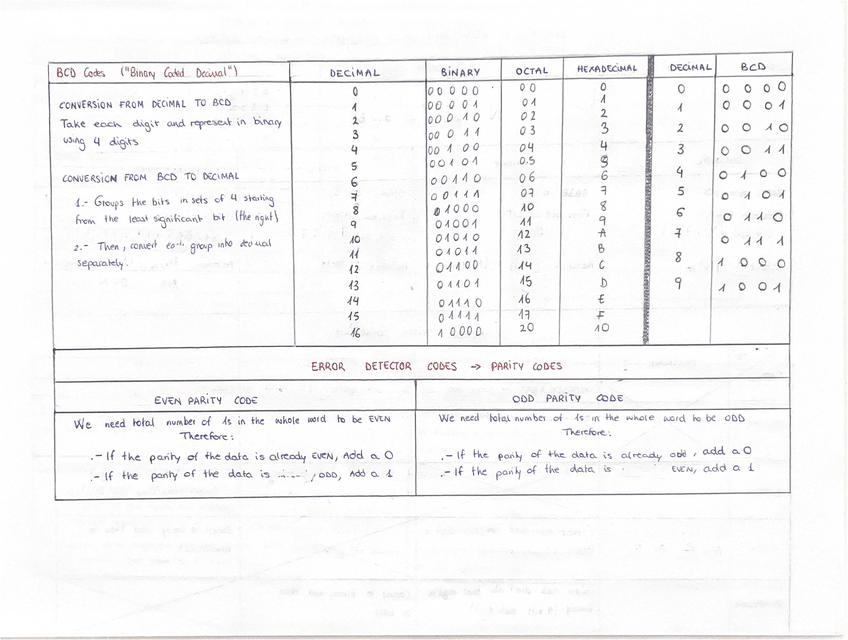 BCD Codes ("Binary Coded Decimal")
CONVERSION FROM DECIMAL TO BCD
Take each digit and represent in binary
using 4 digits
CONVERSION FROM BCD TO DECIMAL
1.- Groups the bits in sets of 4 starting
from the least significant bit (the right)
2.- Then, convert each group into decimal
separately.
DECIMAL BINARY OCTAL HEXADECIMAL
0 00000 00 0
1 00001 01 1
2 00010 02 2
3 00011 03 3
4 00100 04 4
5 00101 0.5 5
6 00110 06 6
7 00111 07 7
8 01000 10 8
9 01001 11 9
10 01010 12 A
11 01011 13 B
12 01100 14 C
13 01101 15 D
14 01110 16 E
15 01111 17 F
16 10000 20 10
DECIMAL BCD
0 0000
1 0001
2 0010
3 0011
4 0100
5 0101
6 0110
7 0111
8 1000
9 1001
ERROR DETECTOR CODES → PARITY CODES
EVEN PARITY CODE
We need total number of 1s in the whole word to be EVEN
Therefore:
.- If the parity of the data is already EVEN, Add a 0
.- If the parity of the data is ODD, Add a 1
ODD PARITY CODE
We need total number of 1s in the whole word to be ODD
Therefore:
.- If the parity of the data is already odd, add a 0
.- If the parity of the data is EVEN, add a 1